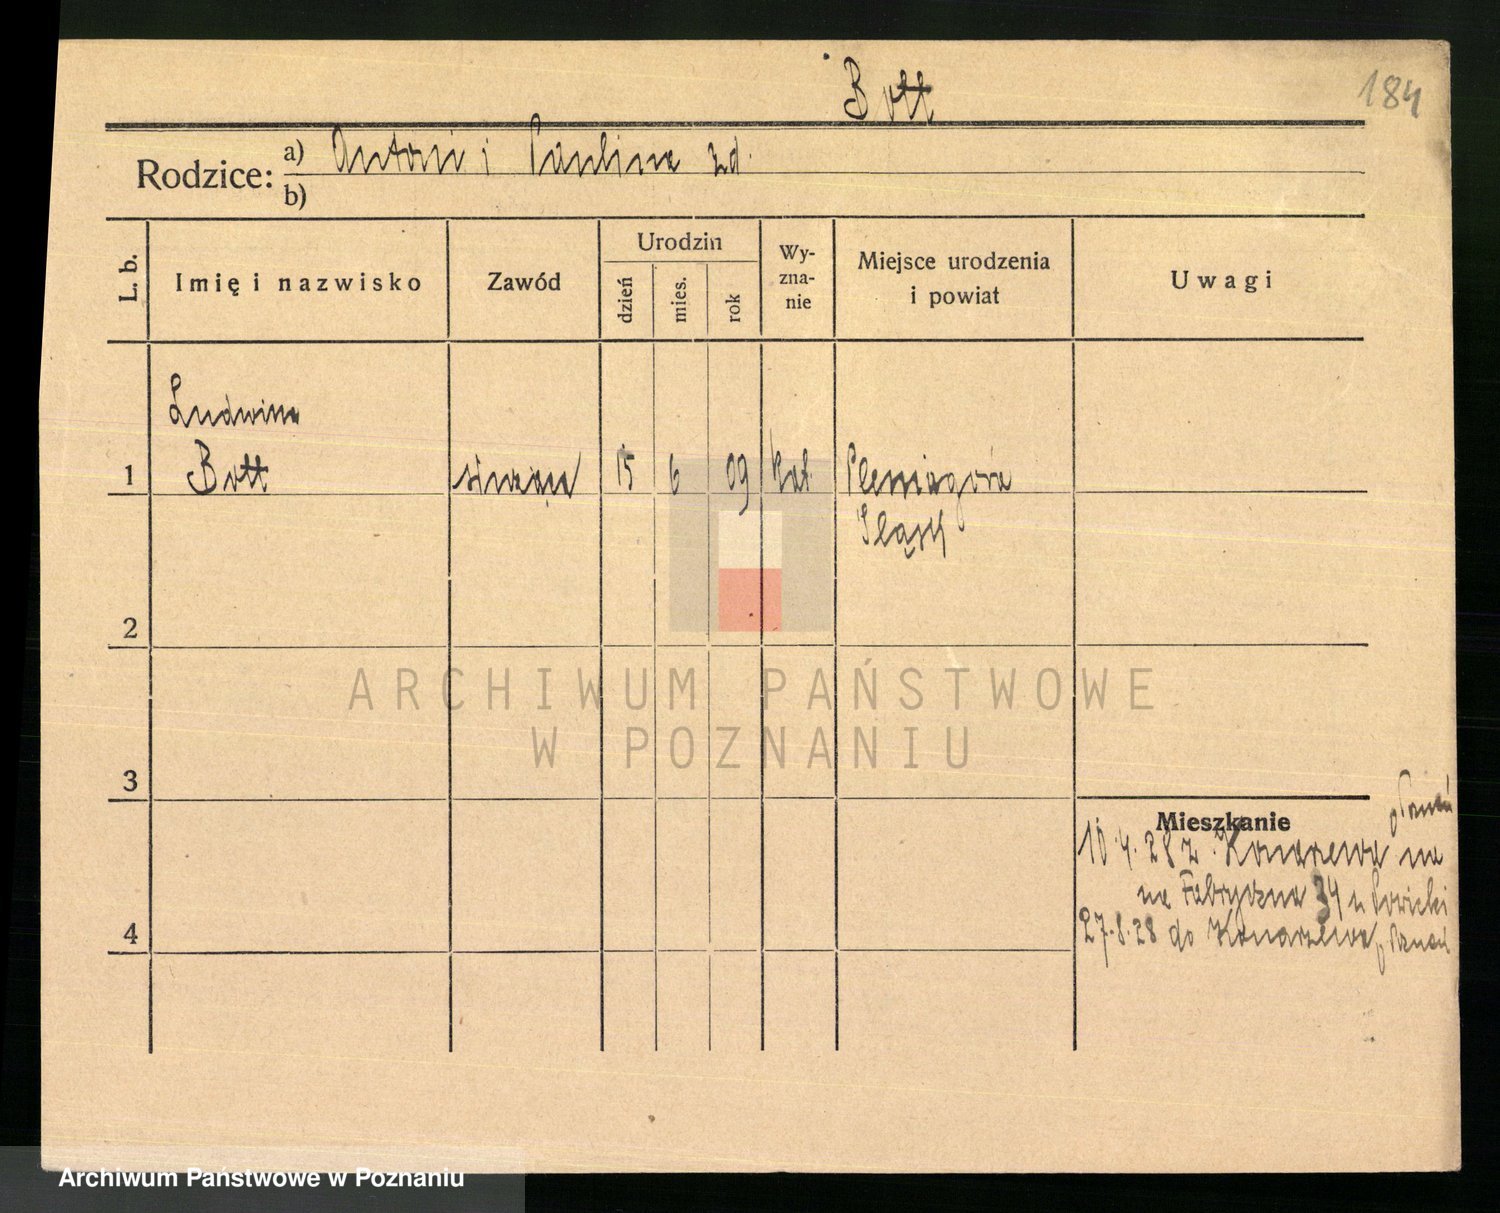 Bott
184
Rodzice: a) Antoni i Paulina zd.
b)
L. b.
Imię i nazwisko
Zawód
Urodzin
dzień
mies.
rok
Wy-
zna-
nie
Miejsce urodzenia
i powiat
Uwagi
Ludwina
1 Bott służąca 15 6 09 kat.
Śląsk
2
3
Mieszkanie
10.4.28 z Konarzewa
na Fabryczna 34 u
4
27.8.28 do Konarzewa p Poznań
ARCHIWUM PAŃSTWOWE
W POZNANIU
Archiwum Państwowe w Poznaniu